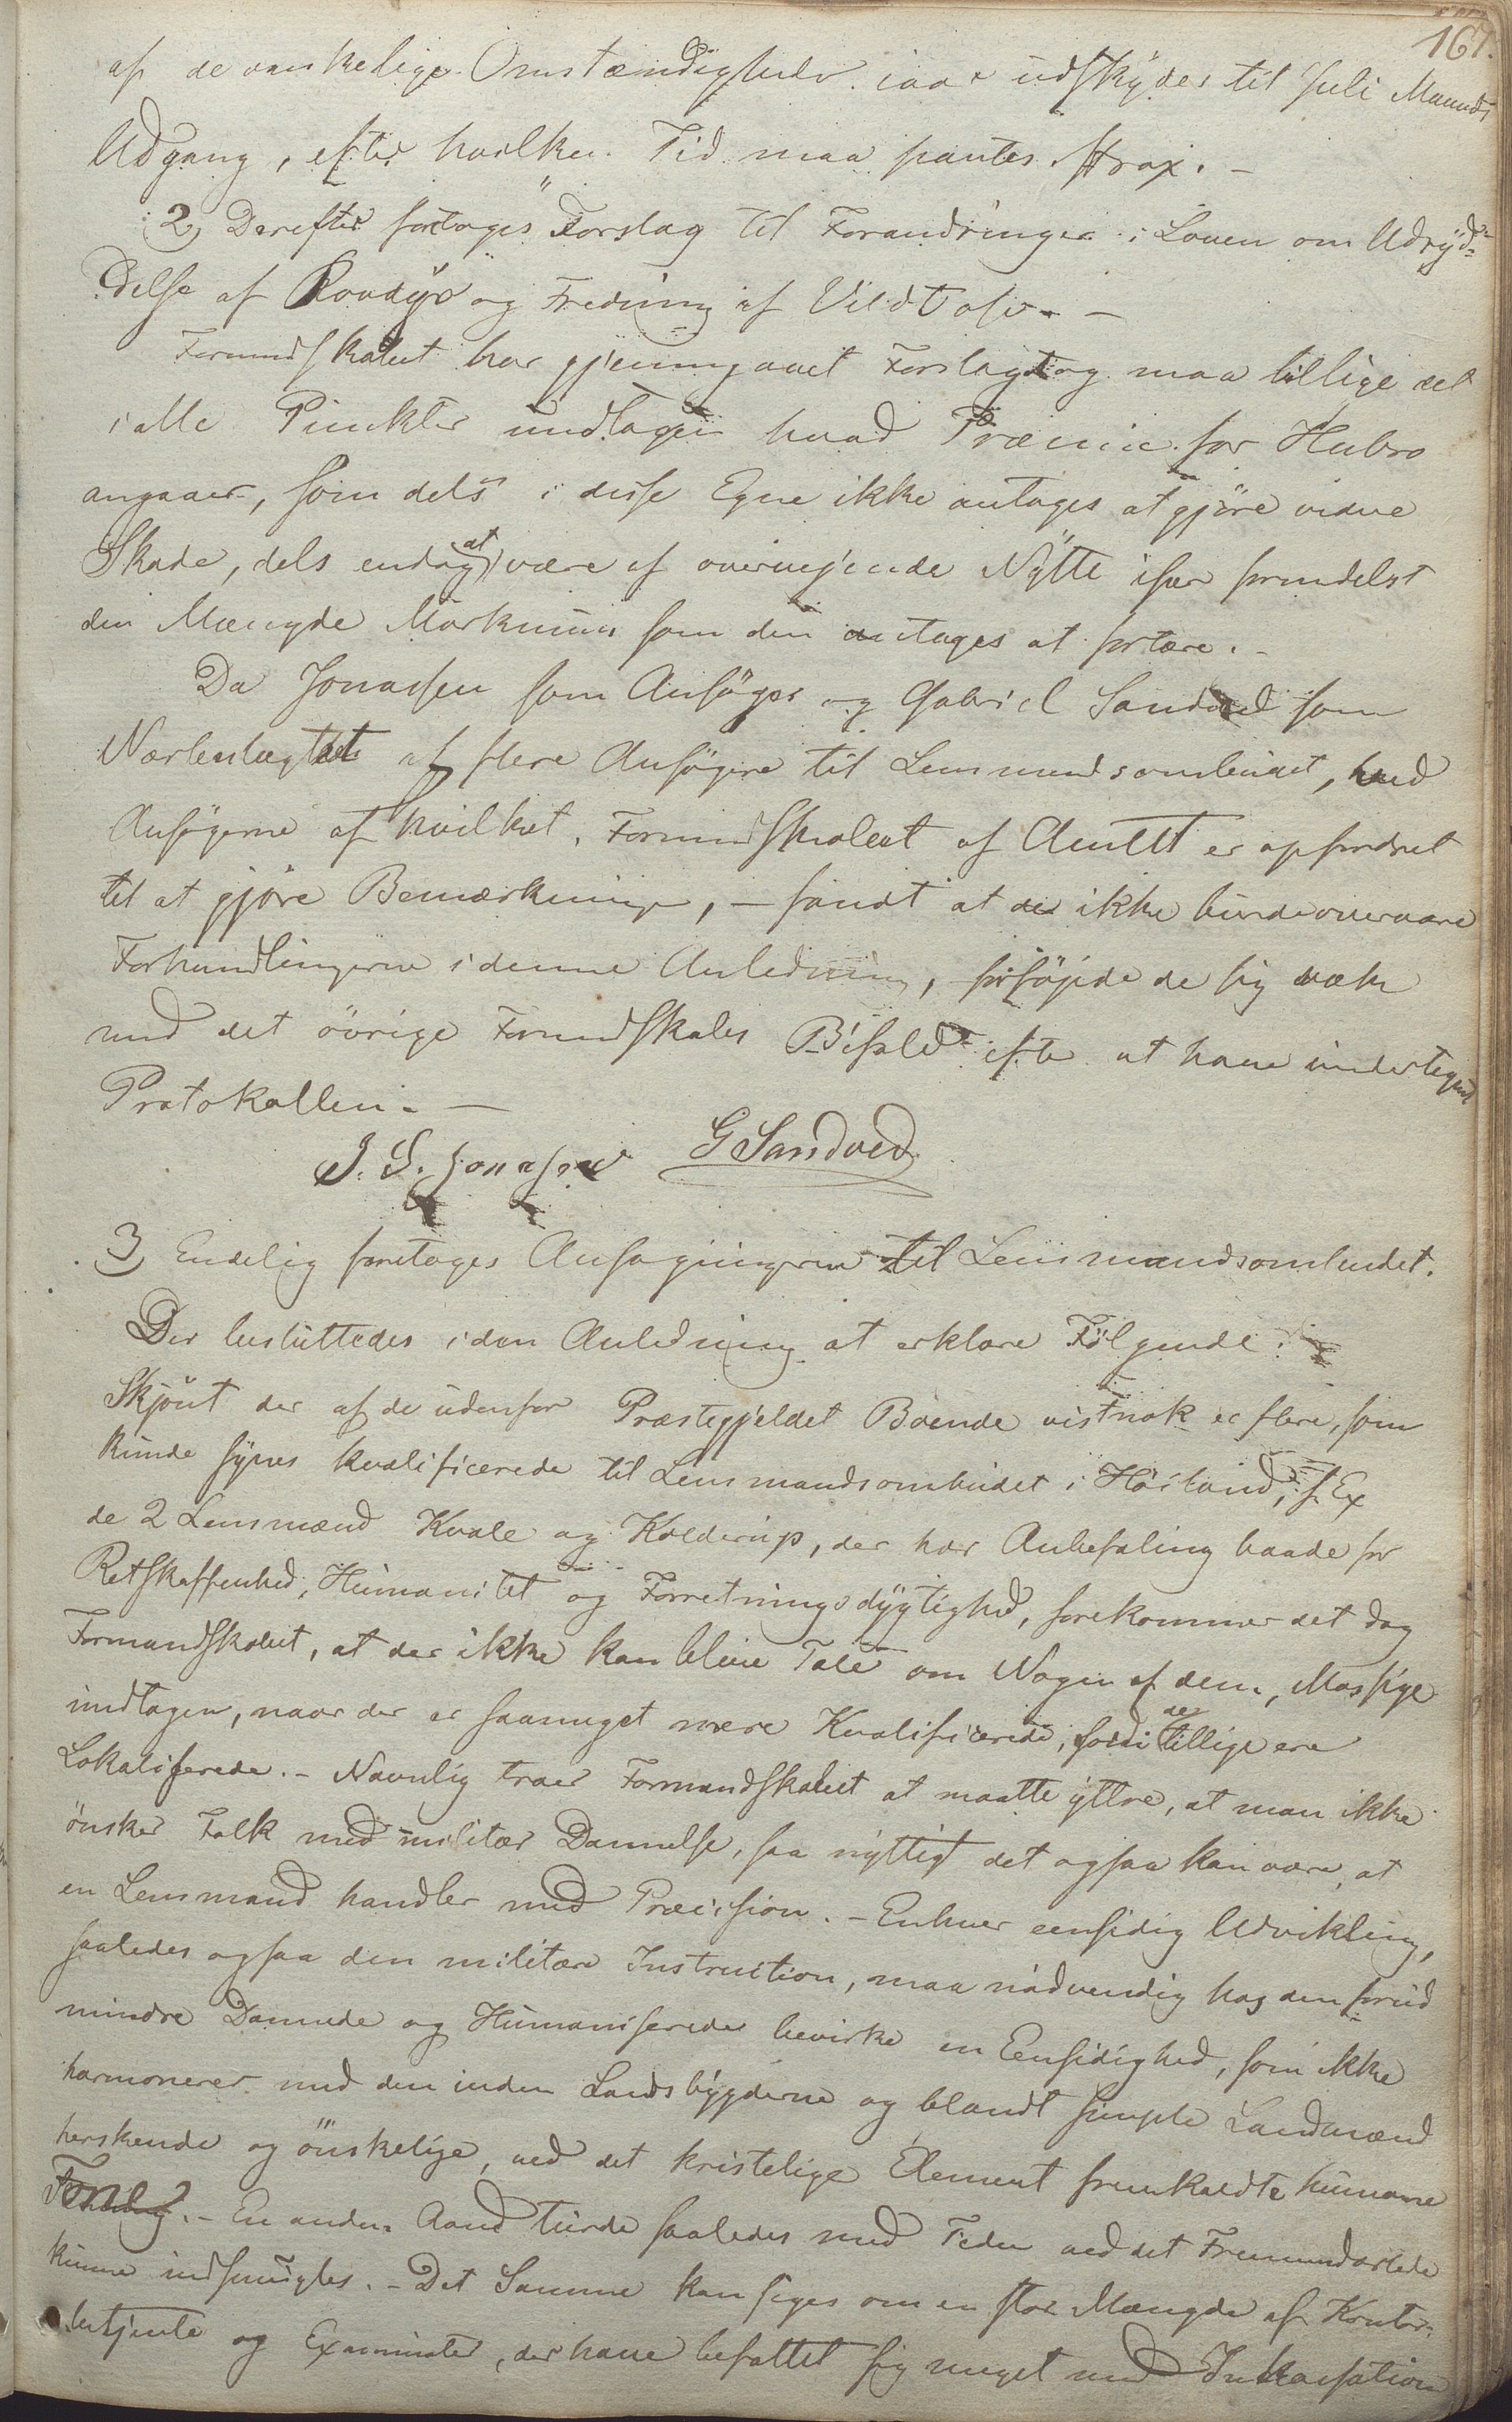 167.
af de vanskelige Omstændigheder iaar udskydes til Juli Maaneds
Udgang, efter hvilken Tid maa pantes strax. -
2) Derefter foretoges Forslag til Forandringer i Loven om Udryd-
delse af Rovdyr og Fredning af Vildt ofv. -
Formandskabet har gjennemgaaet Forslaget og maa billige det
i alle Punkter undtagen hvad Præmie for Hubro
angaaer, som dels i disse Egne ikke antages at gjøre videre
Skade, dels endog at være af overvejende Nytte især formedelst
den Mængde Markmuus som den antages at fortære. -
Da Jonassen som Ansøger og Gabriel Sandved som
Nærbeslægtet af flere Ansøgere til Lensmandsombudet, hvad
Ansøgerne af hvilket, Formandskabet af Amtet er opfordret
til at gjøre Bemærkninger, - fandt at de ikke burde overvære
Forhandlingerne i denne Anledning, forføjede de sig væk
med det øvrige Formandskabs Bifald efter at have undertegnet
Protokollen. -
J. S. Jonassen G Sandved
3) Endelig foretoges Ansøgningerne til Lensmandsombudet.
Der besluttedes i den Anledning at erklære Følgende:
Skjønt der af de udenfor Præstegjeldet Boende vistnok er flere, som
kunde synes kvalificerede til Lensmandsombudet i Høiland, f. Ex
de 2 Lensmænd Kvale og Kolderup, der har Anbefaling baade for
Retskaffenhed, Humanitet og Forretningsdygtighed, forekommer det dog
Formandskabet, at der ikke kan blive Tale om Nogen af dem, Massige
undtagen, naar der er saameget mere Kvalificerede, fordi de tillige ere
Lokaliserede. - Navnlig troer Formandskabet at maatte yttre, at man ikke
ønsker Folk med militær Dannelse, saa nyttigt det ogsaa kan være, at
en Lensmand handler med Præcision. - Enhver eensidig Udvikling,
saaledes ogsaa den militære Instruction, maa nødvendig hos den forud
mindre Dannede og Humaniserede bevirke en Eensidighed, som ikke
harmonerer med den inden Landsbygderne og blandt simple Landmænd
herskende og ønskelige, ved det kristelige Element fremkaldte humane
Tone. - En anden Aand turde saaledes med Tiden ved det Fremmedartede
kunne indsmugles. - Det Samme kan siges om en stor Mængde af Kontor-
betjente og Examinater, der have befattet sig meget med Inkassation